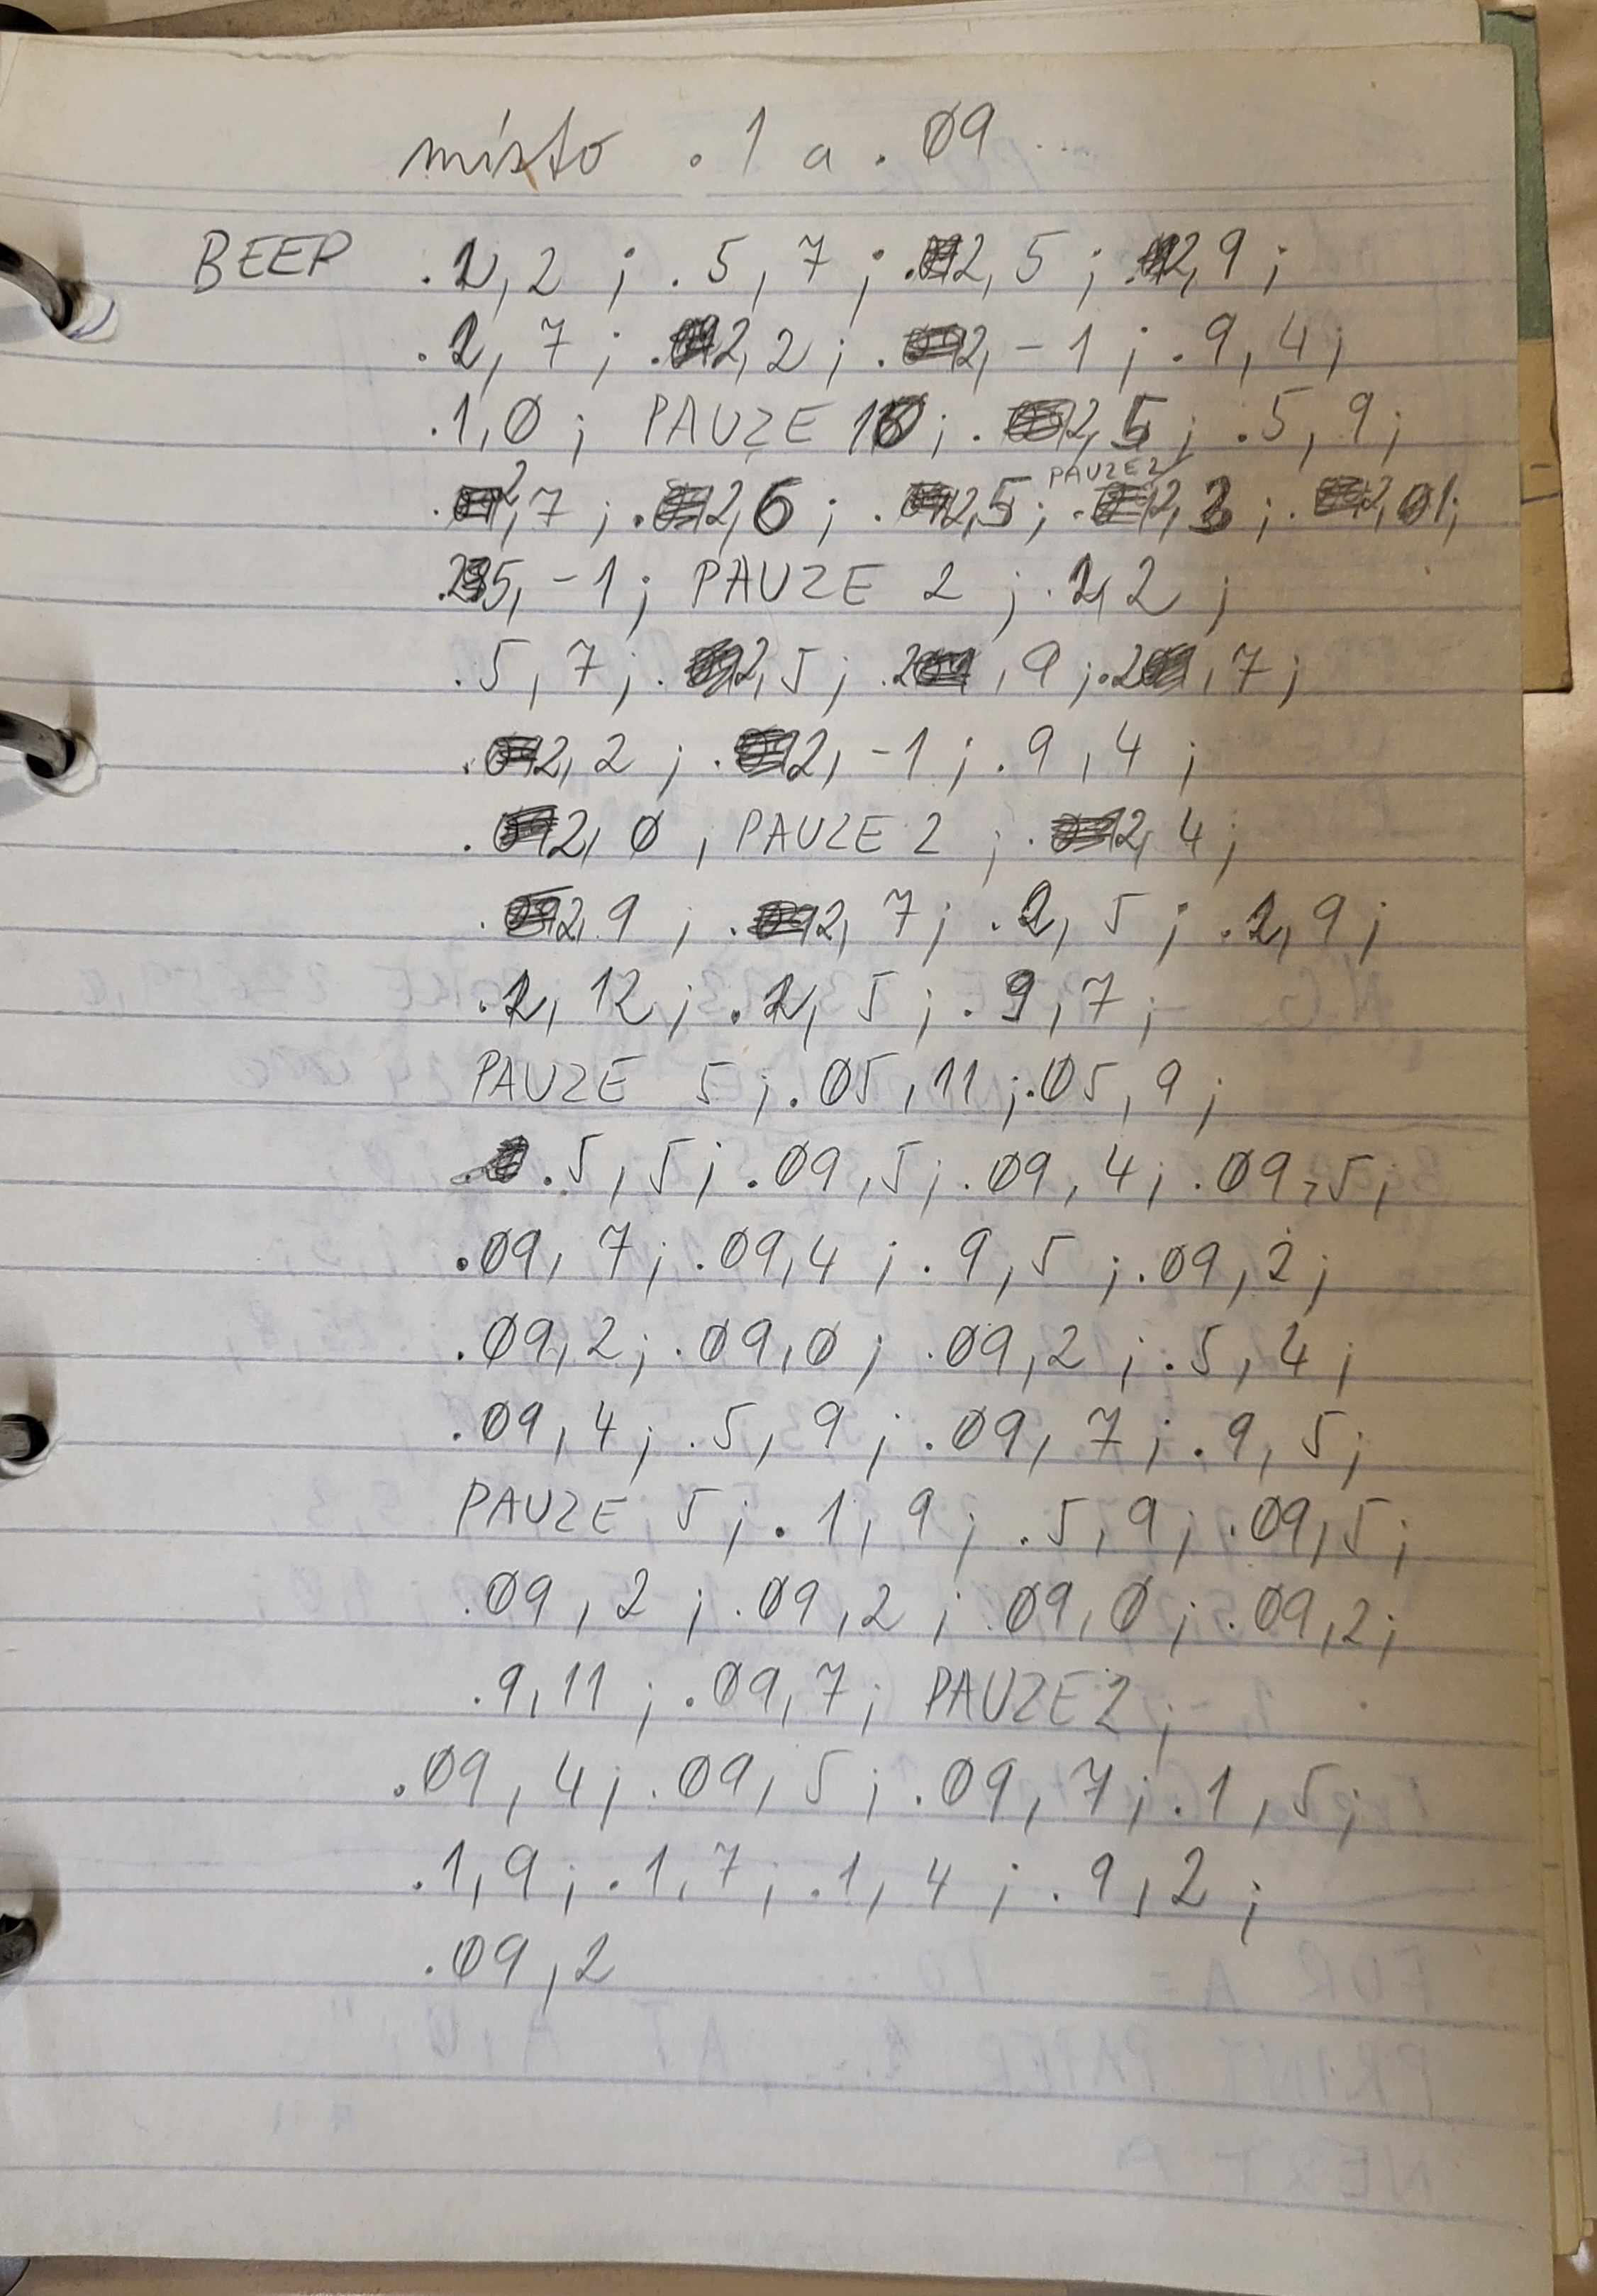 místo .1 a .09...
BEEP .2,2 ; .5,7 ; .2,5 ; .2,9 ;
.2,7 ; .2,2 ; .2,-1 ; .9,4 ;
.1,0 ; PAUZE 10 ; .2,5 ; .5,9 ;
PAUZE 2
.2,7 ; .2,6 ; .2,5 ; .2,3 ; .2,01 ;
.25,-1 ; PAUZE 2 ; .2,2 ;
.5,7 ; .2,5 ; .2,9 ; .2,7 ;
.2,2 ; .2,-1 ; .9,4 ;
.2,0 , PAUZE 2 ; .2,4 ;
.2,9 ; .2,7 ; .2,5 ; .2,9 ;
.2,12 ; .2,5 ; .9,7 ;
PAUZE 5 ; .05,11 ; .05,9 ;
.5,5 ; .09,5 ; .09,4 ; .09,5 ;
.09,7 ; .09,4 ; .9,5 ; .09,2 ;
.09,2 ; .09,0 ; .09,2 ; .5,4 ;
.09,4 ; .5,9 ; .09,7 ; .9,5 ;
PAUZE 5 ; .1,9 ; .5,9 ; .09,5 ;
.09,2 ; .09,2 ; .09,0 ; .09,2 ;
.9,11 ; .09,7 ; PAUZE 2 ;
.09,4 ; .09,5 ; .09,7 ; .1,5 ;
.1,9 ; .1,7 ; .1,4 ; .9,2 ;
.09,2